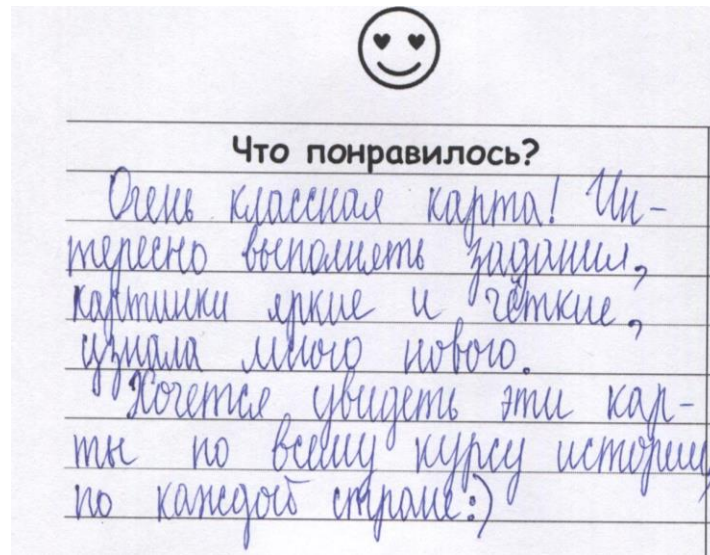 Что понравилось?
Очень классная карта! Ин-
тересно выполнять задания,
картинки яркие и чёткие,
узнала много нового.
Хочется увидеть эти кар-
ты по всему курсу истории,
по каждой стране:)